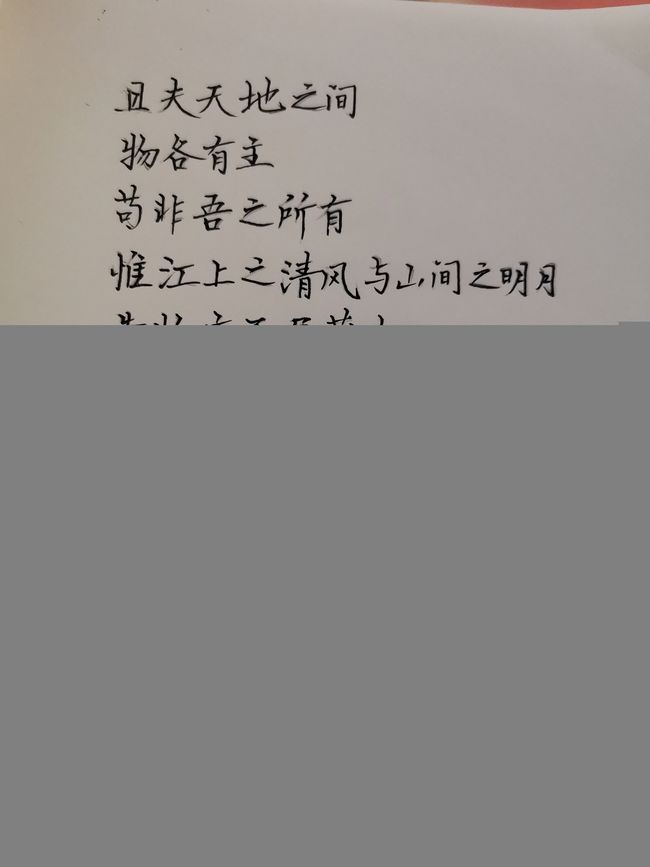 且夫天地之间
物各有主
苟非吾之所有
惟江上之清风与山间之明月